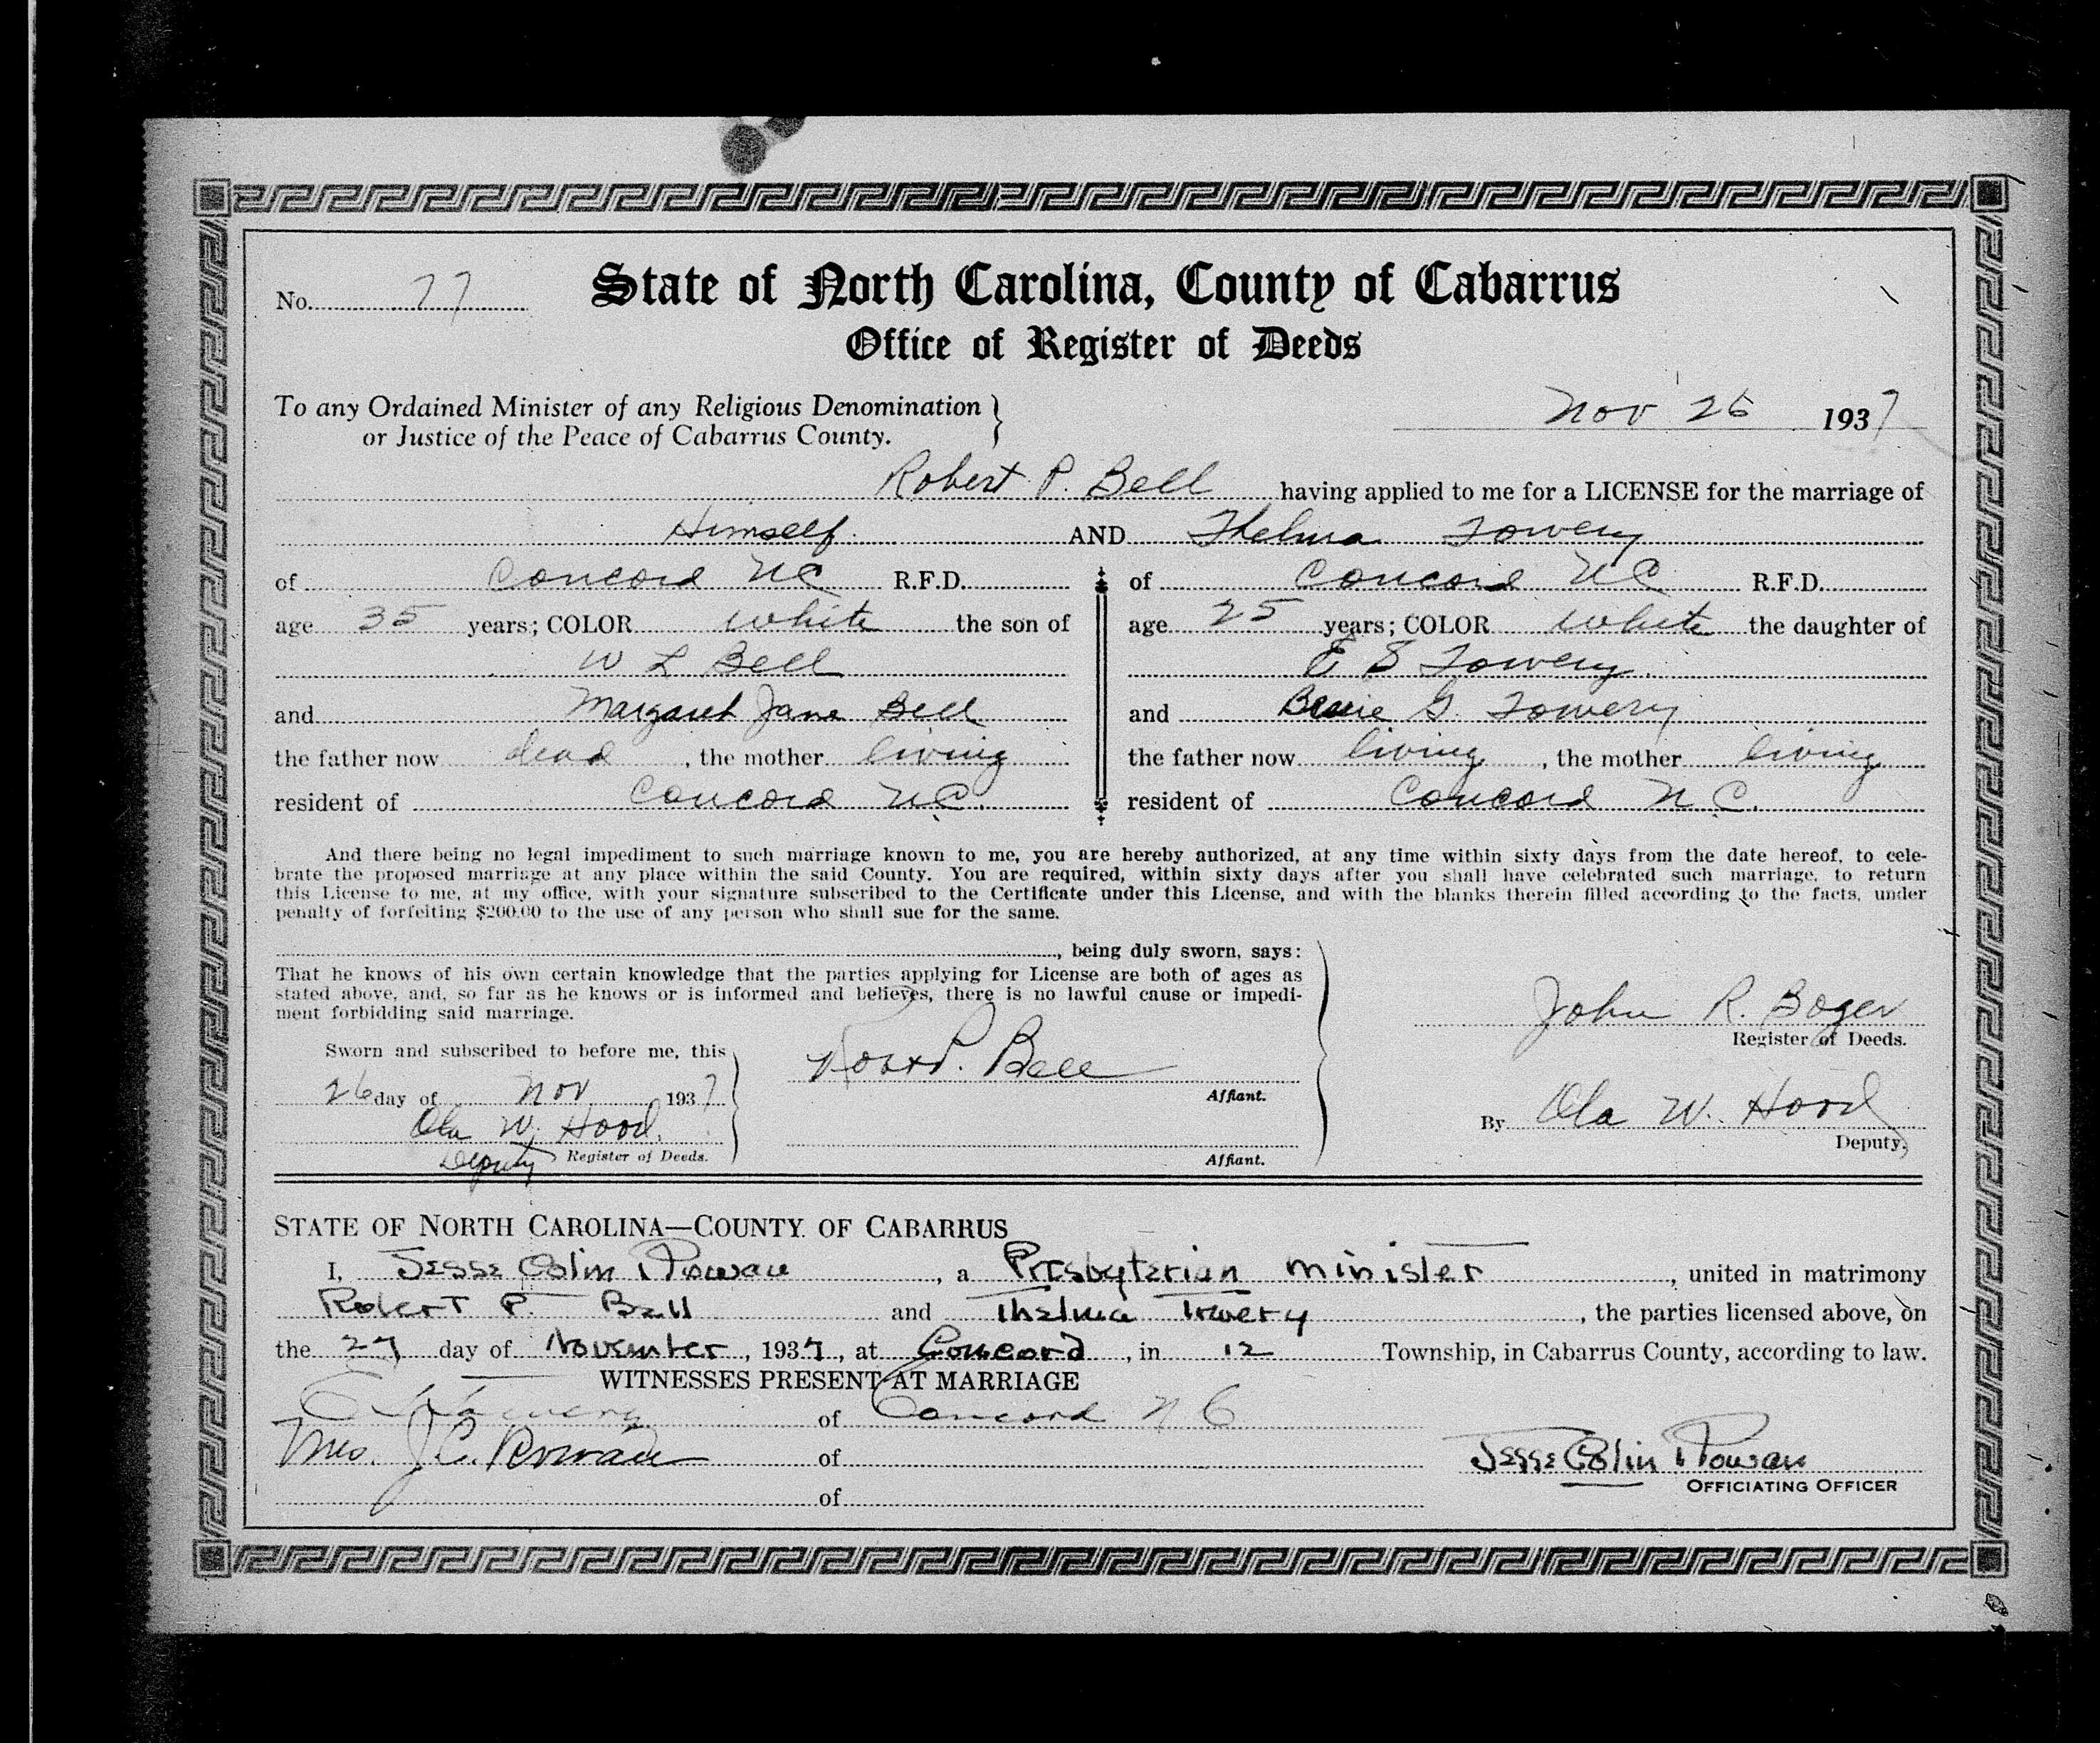 No. 77 State of North Carolina, County of Cabarrus
Office of Register of Deeds
To any Ordained Minister of any Religious Denomination
or Justice of the Peace of Cabarrus County.
Nov 26 1937
Robert P. Bell having applied to me for a LICENSE for the marriage of
Himself AND Thelma Towery
of Concord NC R.F.D. of Concord NC R.F.D.
age 35 years; COLOR white the son of age 25 years; COLOR white the daughter of
W L Bell E S Towery
and Margaret Jane Bell and Bessie G. Towery
the father now dead, the mother living the father now living, the mother living
resident of Concord N.C. resident of Concord N.C.
And there being no legal impediment to such marriage known to me, you are hereby authorized, at any time within sixty days from the date hereof, to cele-
brate the proposed marriage at any place within the said County. You are required, within sixty days after you shall have celebrated such marriage, to return
this License to me, at my office, with your signature subscribed to the Certificate under this License, and with the blanks therein filled according to the facts, under
penalty of forfeiting $200.00 to the use of any person who shall sue for the same.
, being duly sworn, says:
That he knows of his own certain knowledge that the parties applying for License are both of ages as
stated above, and, so far as he knows or is informed and believes, there is no lawful cause or impedi-
ment forbidding said marriage.
John R. Boger
Register of Deeds.
Sworn and subscribed to before me, this
26 day of Nov 1937
Robt P. Bell
Affiant.
Ola W. Hood.
Deputy Register of Deeds.
Affiant.
By Ola W. Hood
Deputy.
STATE OF NORTH CAROLINA—COUNTY OF CABARRUS
I, Jesse Colin Rowan, a Presbyterian minister, united in matrimony
Robert P. Bell and Thelma Towery, the parties licensed above, on
the 27 day of November, 1937, at Concord, in 12 Township, in Cabarrus County, according to law.
WITNESSES PRESENT AT MARRIAGE
Towery of Concord N C
Mrs. J.C. Rowan of
of
Jesse Colin Rowan
OFFICIATING OFFICER